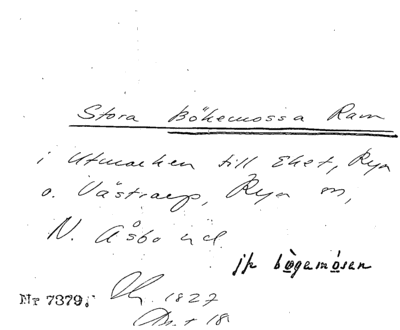 Stora Bökemossa Ram
i Utmarken till Eket, Rya
o. Västraep, Rya sn,
N. Åsbo hd.
jfr bògamósen
Nr 7379. 1827